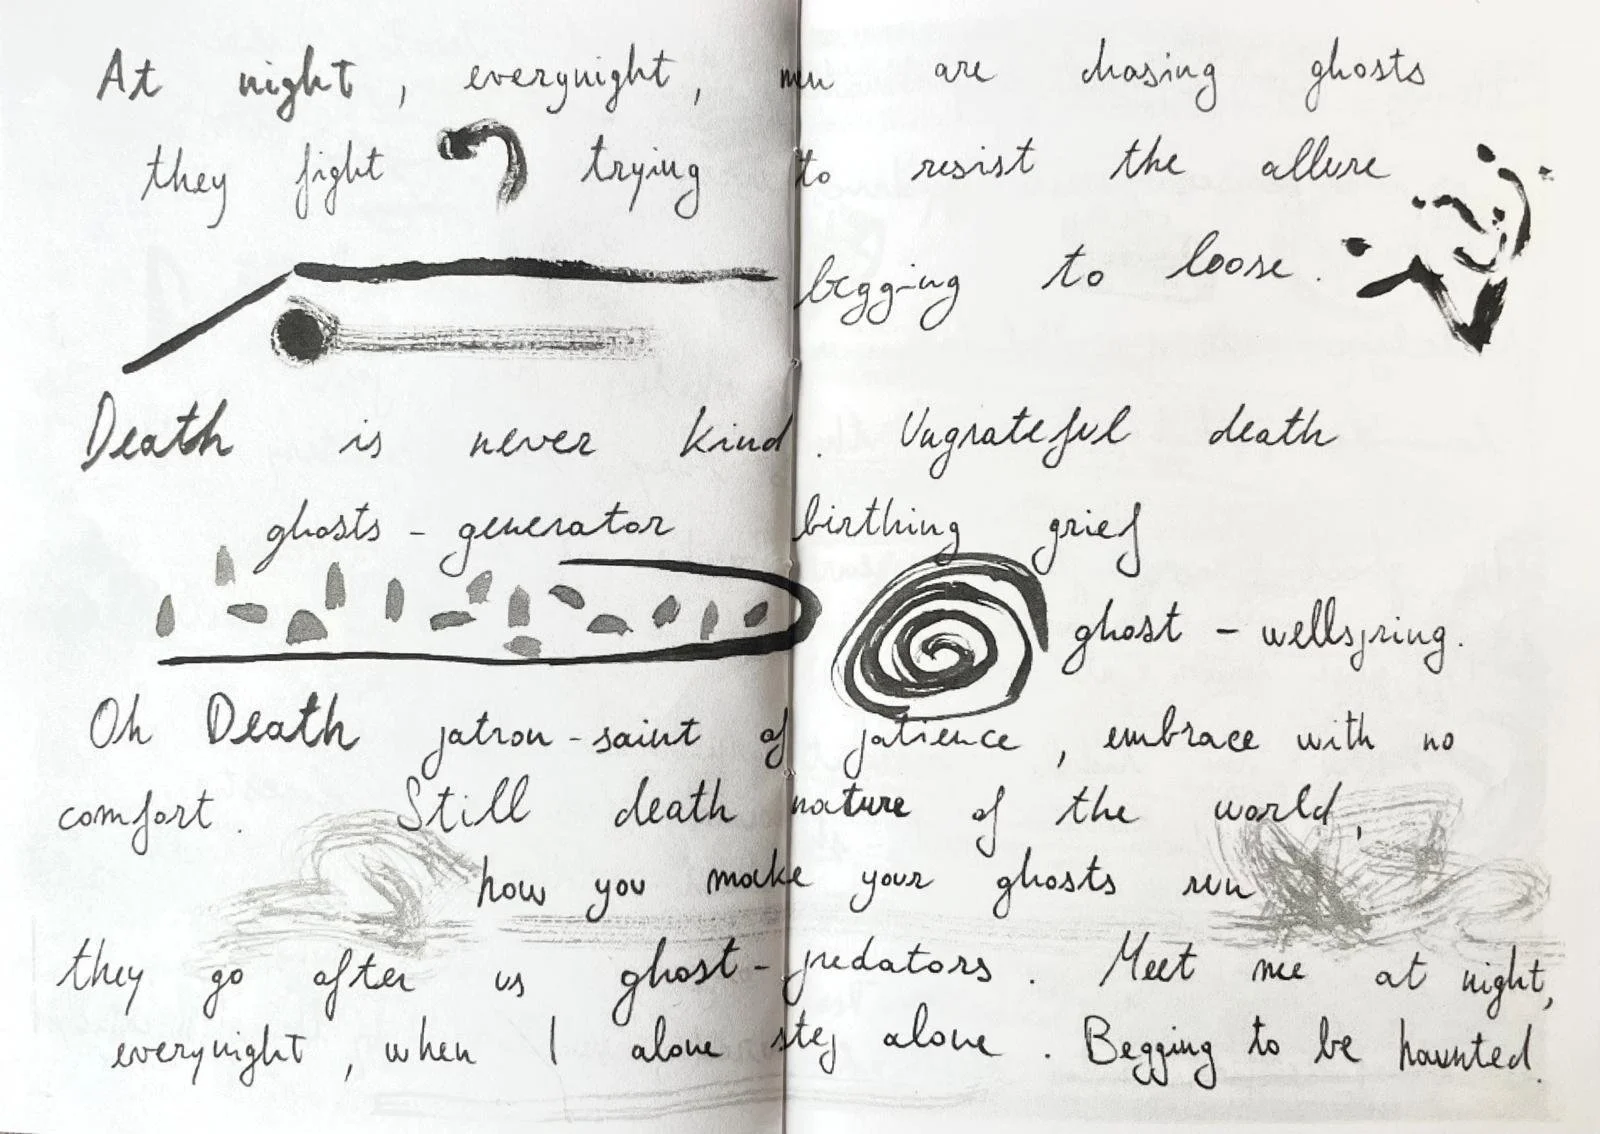 At night, everynight, men are chasing ghosts
they fight trying to resist the allure
begging to loose.
Death is never kind. Ungrateful death
ghosts-generator birthing grief
ghost-wellspring.
Oh Death patron-saint of patience, embrace with no
comfort. Still death nature of the world,
how you make your ghosts run
they go after us ghost-predators. Meet me at night,
everynight, when I alone step alone. Begging to be haunted.